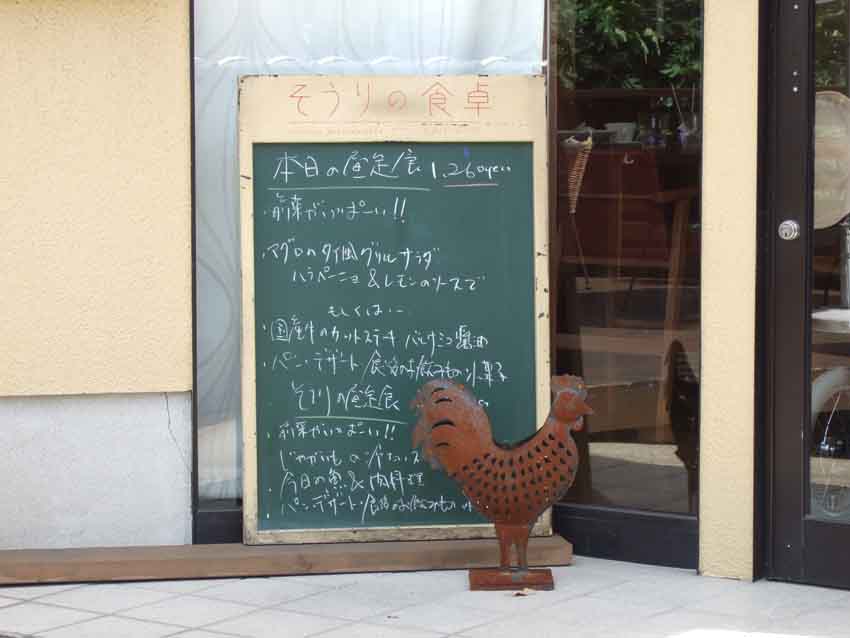 そうりの食卓
本日の昼定食 1,260yen
・前菜がいっぱーい!!
・マグロのタイ風グリルサラダ
ハラペーニョ&レモンのソースで
もしくは…
・国産牛のカットステーキ バルサミコ醤油
・パン・デザート・食後のお飲みもの・小菓子
そうりの昼定食
・前菜がいっぱーい!!
じゃがいもの冷たいス
・今日の魚&肉料理
・パン・デザート・食後のお飲みもの